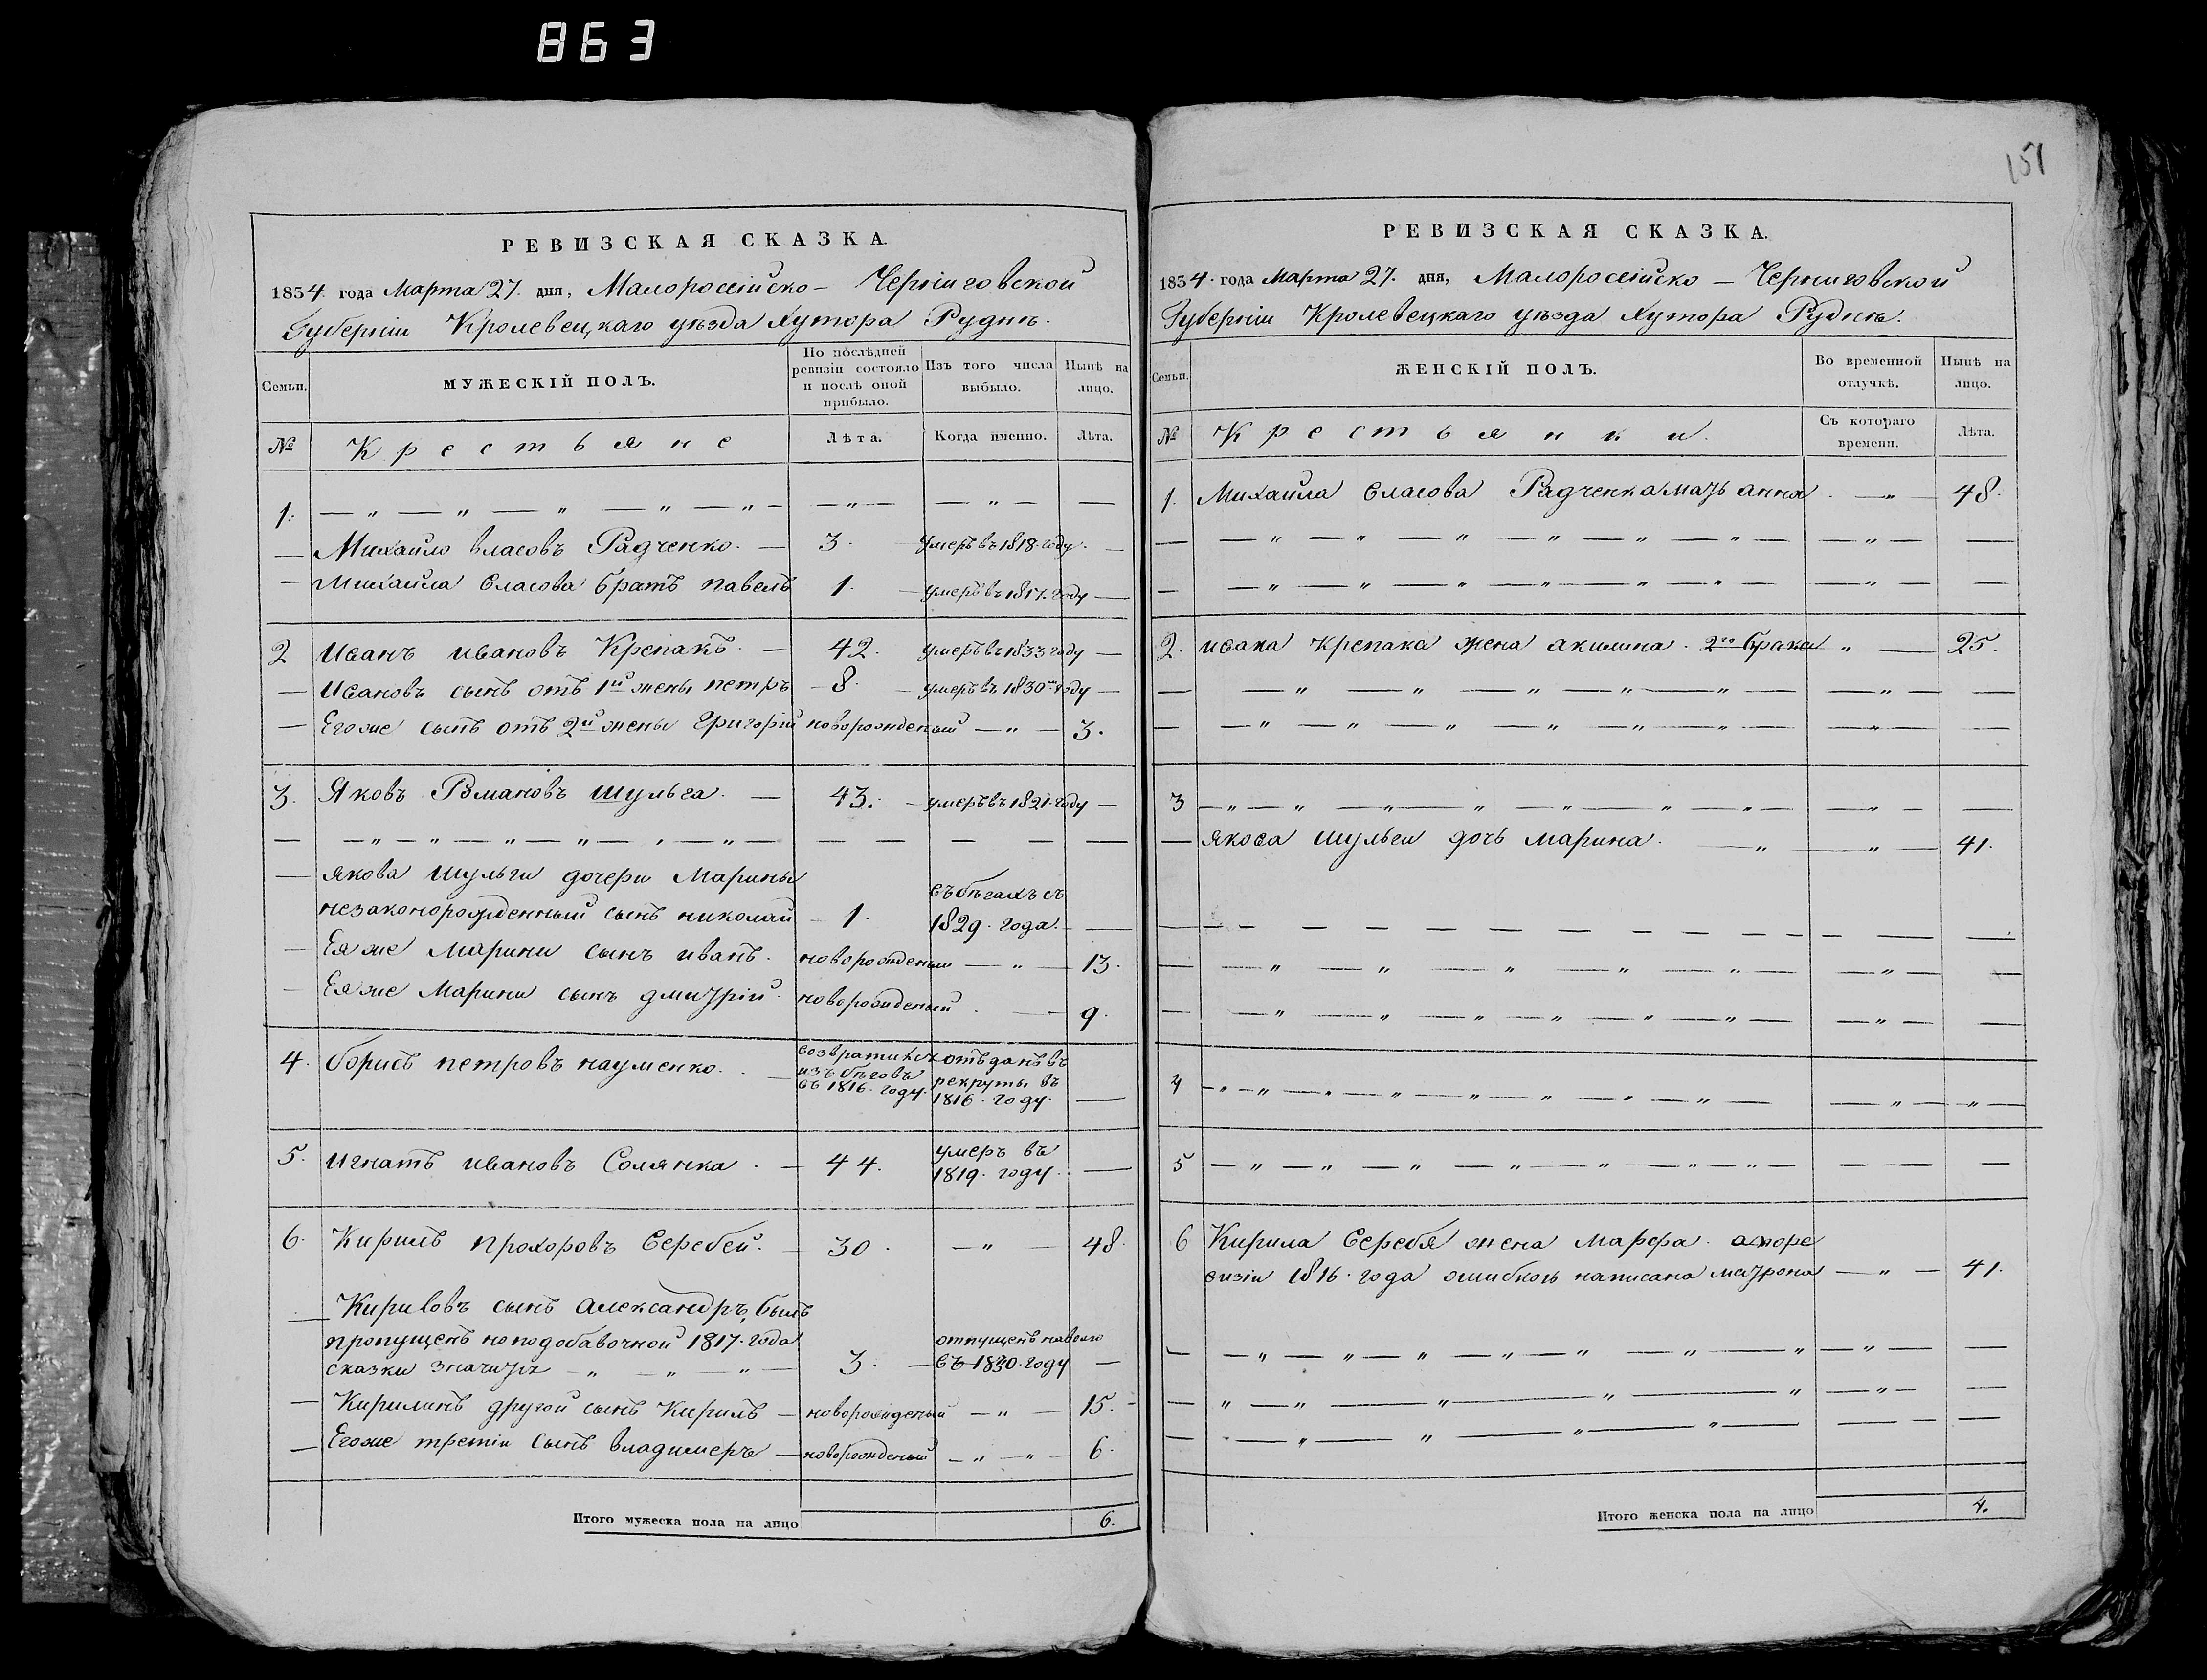 863
151
РЕВИЗСКАЯ СКАЗКА.
1834. года Марта 27. дня, Малоросейско — Черниговской
Губерніи Кролевецкаго уѣзда Хутора Руднѣ.
Семьи.
МУЖЕСКІЙ ПОЛЪ.
По послѣдней ревизіи состояло и послѣ оной прибыло.
Изъ того числа выбыло.
Нынѣ на лицо.
№ Крестьяне Лѣта. Когда именно. Лѣта.
1. — „ — „ — „ — „ — „ — — „ — — „ — —
— Михайло власовъ Радченко. — 3. умеръ въ 1818. году. —
— Михайла власова братъ павелъ 1. — умеръ въ 1817. году —
2 Иванъ ивановъ Крепакъ. — 42. умеръ въ 1833 году —
— Ивановъ сынъ отъ 1й жены петръ — 8. — умеръ въ 1830м году —
— Егоже сынъ отъ 2й жены григорій новорожденый — „ — 3.
3. Яковъ Романовъ шульга. — 43. — умеръ въ 1821. году —
— — „ — „ — „ — „ — „ — „ — — — — — —
— якова шульги дочери Марины
незаконорожденный сынъ николай — 1. въ бѣгахъ съ 1829. года. —
— Еяже Марини сынъ иванъ. новорожденый — „ — 13.
— Еяже Марини сынъ дмитрій. новорожденый. — 9.
4. борисъ петровъ науменко. . — возвратился изъ бѣговъ въ 1816. году. отъданъ въ рекруты въ 1816. году. —
5. игнатъ ивановъ Солянка . — 44. умеръ въ 1819. году. —
6. Кирилъ прохоровъ Серебей. — 30. — „ — 48.
— Кириловъ сынъ александръ, былъ
пропущенъ ноподобавочной 1817. года
сказки значится — „ — „ — „ — 3. — отпущенъ наволю въ 1830. году —
— Кирилинъ другой сынъ Кирилъ — новорожденый — „ — 15. —
— Егоже третіи сынъ владимеръ — новорожденый — „ — „ — 6.
Итого мужеска пола на лицо 6.
РЕВИЗСКАЯ СКАЗКА.
1834. года Марта 27. дня, Малоросейско — Черниговской
Губерніи Кролевецкаго уѣзда Хутора Руднѣ.
Семьи.
ЖЕНСКІЙ ПОЛЪ.
Во временной отлучкѣ.
Нынѣ на лицо.
№ Крестьянки. Съ котораго времени. Лѣта.
1. Михайла власова Радченка мать анна. — „ — 48.
— — „ — „ — „ — „ — „ — „ — — „ — —
— — „ — „ — „ — „ — „ — „ — — „ — —
2. ивана Крепака жена акилина. 2го брака „ — 25.
— — „ — „ — „ — „ — „ — „ — — „ — —
— — „ — „ — „ — „ — „ — „ — — „ — —
3 — „ — „ — „ — „ — „ — „ — „ — — „ — —
— якова шульги дочь марина. — „ — „ — 41.
— — — — — — — — — — — — — —
— — „ — „ — „ — „ — „ — — „ — —
— — „ — „ — „ — „ — „ — „ — — „ — —
4 — „ — „ — „ — „ — „ — „ — „ — „ — — „ — „ —
5 — „ — „ — „ — „ — „ — „ — „ — — — —
6 Кирила Серебя жена Марфа. а поре
визіи 1816. года ошибкою написана матрона — „ — 41.
— — „ — „ — „ — „ — „ — „ — „ — „ — —
— „ — „ — „ — „ — „ — „ — —
— — „ — „ — „ — „ — — — —
Итого женска пола на лицо 4.